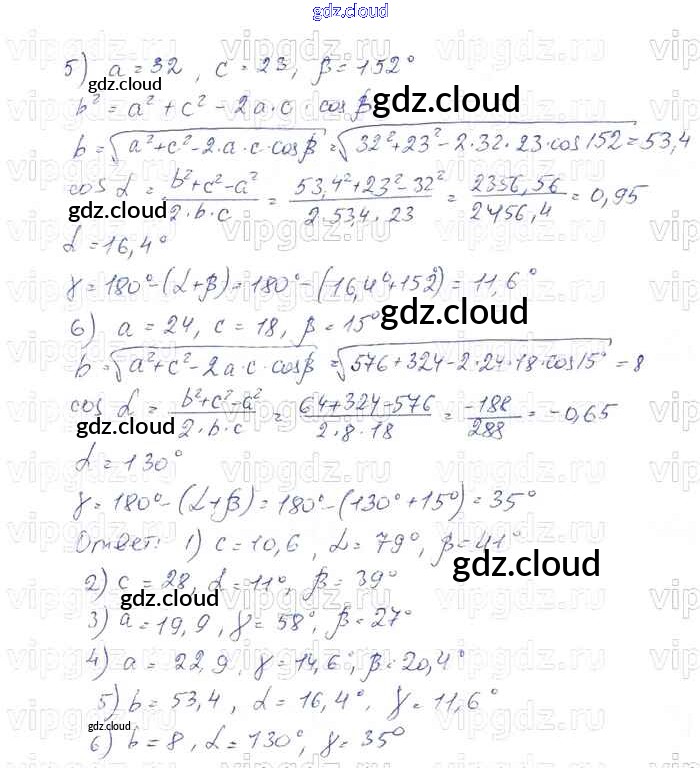 gdz.cloud
5) a = 32, c = 23, β = 152°
gdz.cloud
b² = a² + c² - 2a·c·cosβ
gdz.cloud
b = √(a²+c²-2·a·c·cosβ) = √(32²+23²-2·32·23·cos152) = 53,4
cos α = (b²+c²-a²)/(2·b·c) = (53,4²+23²-32²)/(2·53,4·23) = 2356,56/2456,4 = 0,95
gdz.cloud
α = 16,4°
γ = 180° - (α+β) = 180° - (16,4°+152°) = 11,6°
6) a = 24, c = 18, β = 15°
gdz.cloud
b = √(a²+c²-2a·c·cosβ) = √(576+324-2·24·18·cos15°) = 8
cos α = (b²+c²-a²)/(2·b·c) = (64+324-576)/(2·8·18) = -188/288 = -0,65
gdz.cloud
α = 130°
γ = 180° - (α+β) = 180° - (130°+15°) = 35°
Ответ: 1) c = 10,6, α = 79°, β = 41°
gdz.cloud
2) c = 28, α = 11°, β = 39°
gdz.cloud
3) a = 19,9, γ = 58°, β = 27°
4) a = 22,9, γ = 14,6°, β = 20,4°
5) b = 53,4, α = 16,4°, γ = 11,6°
gdz.cloud
6) b = 8, α = 130°, γ = 35°